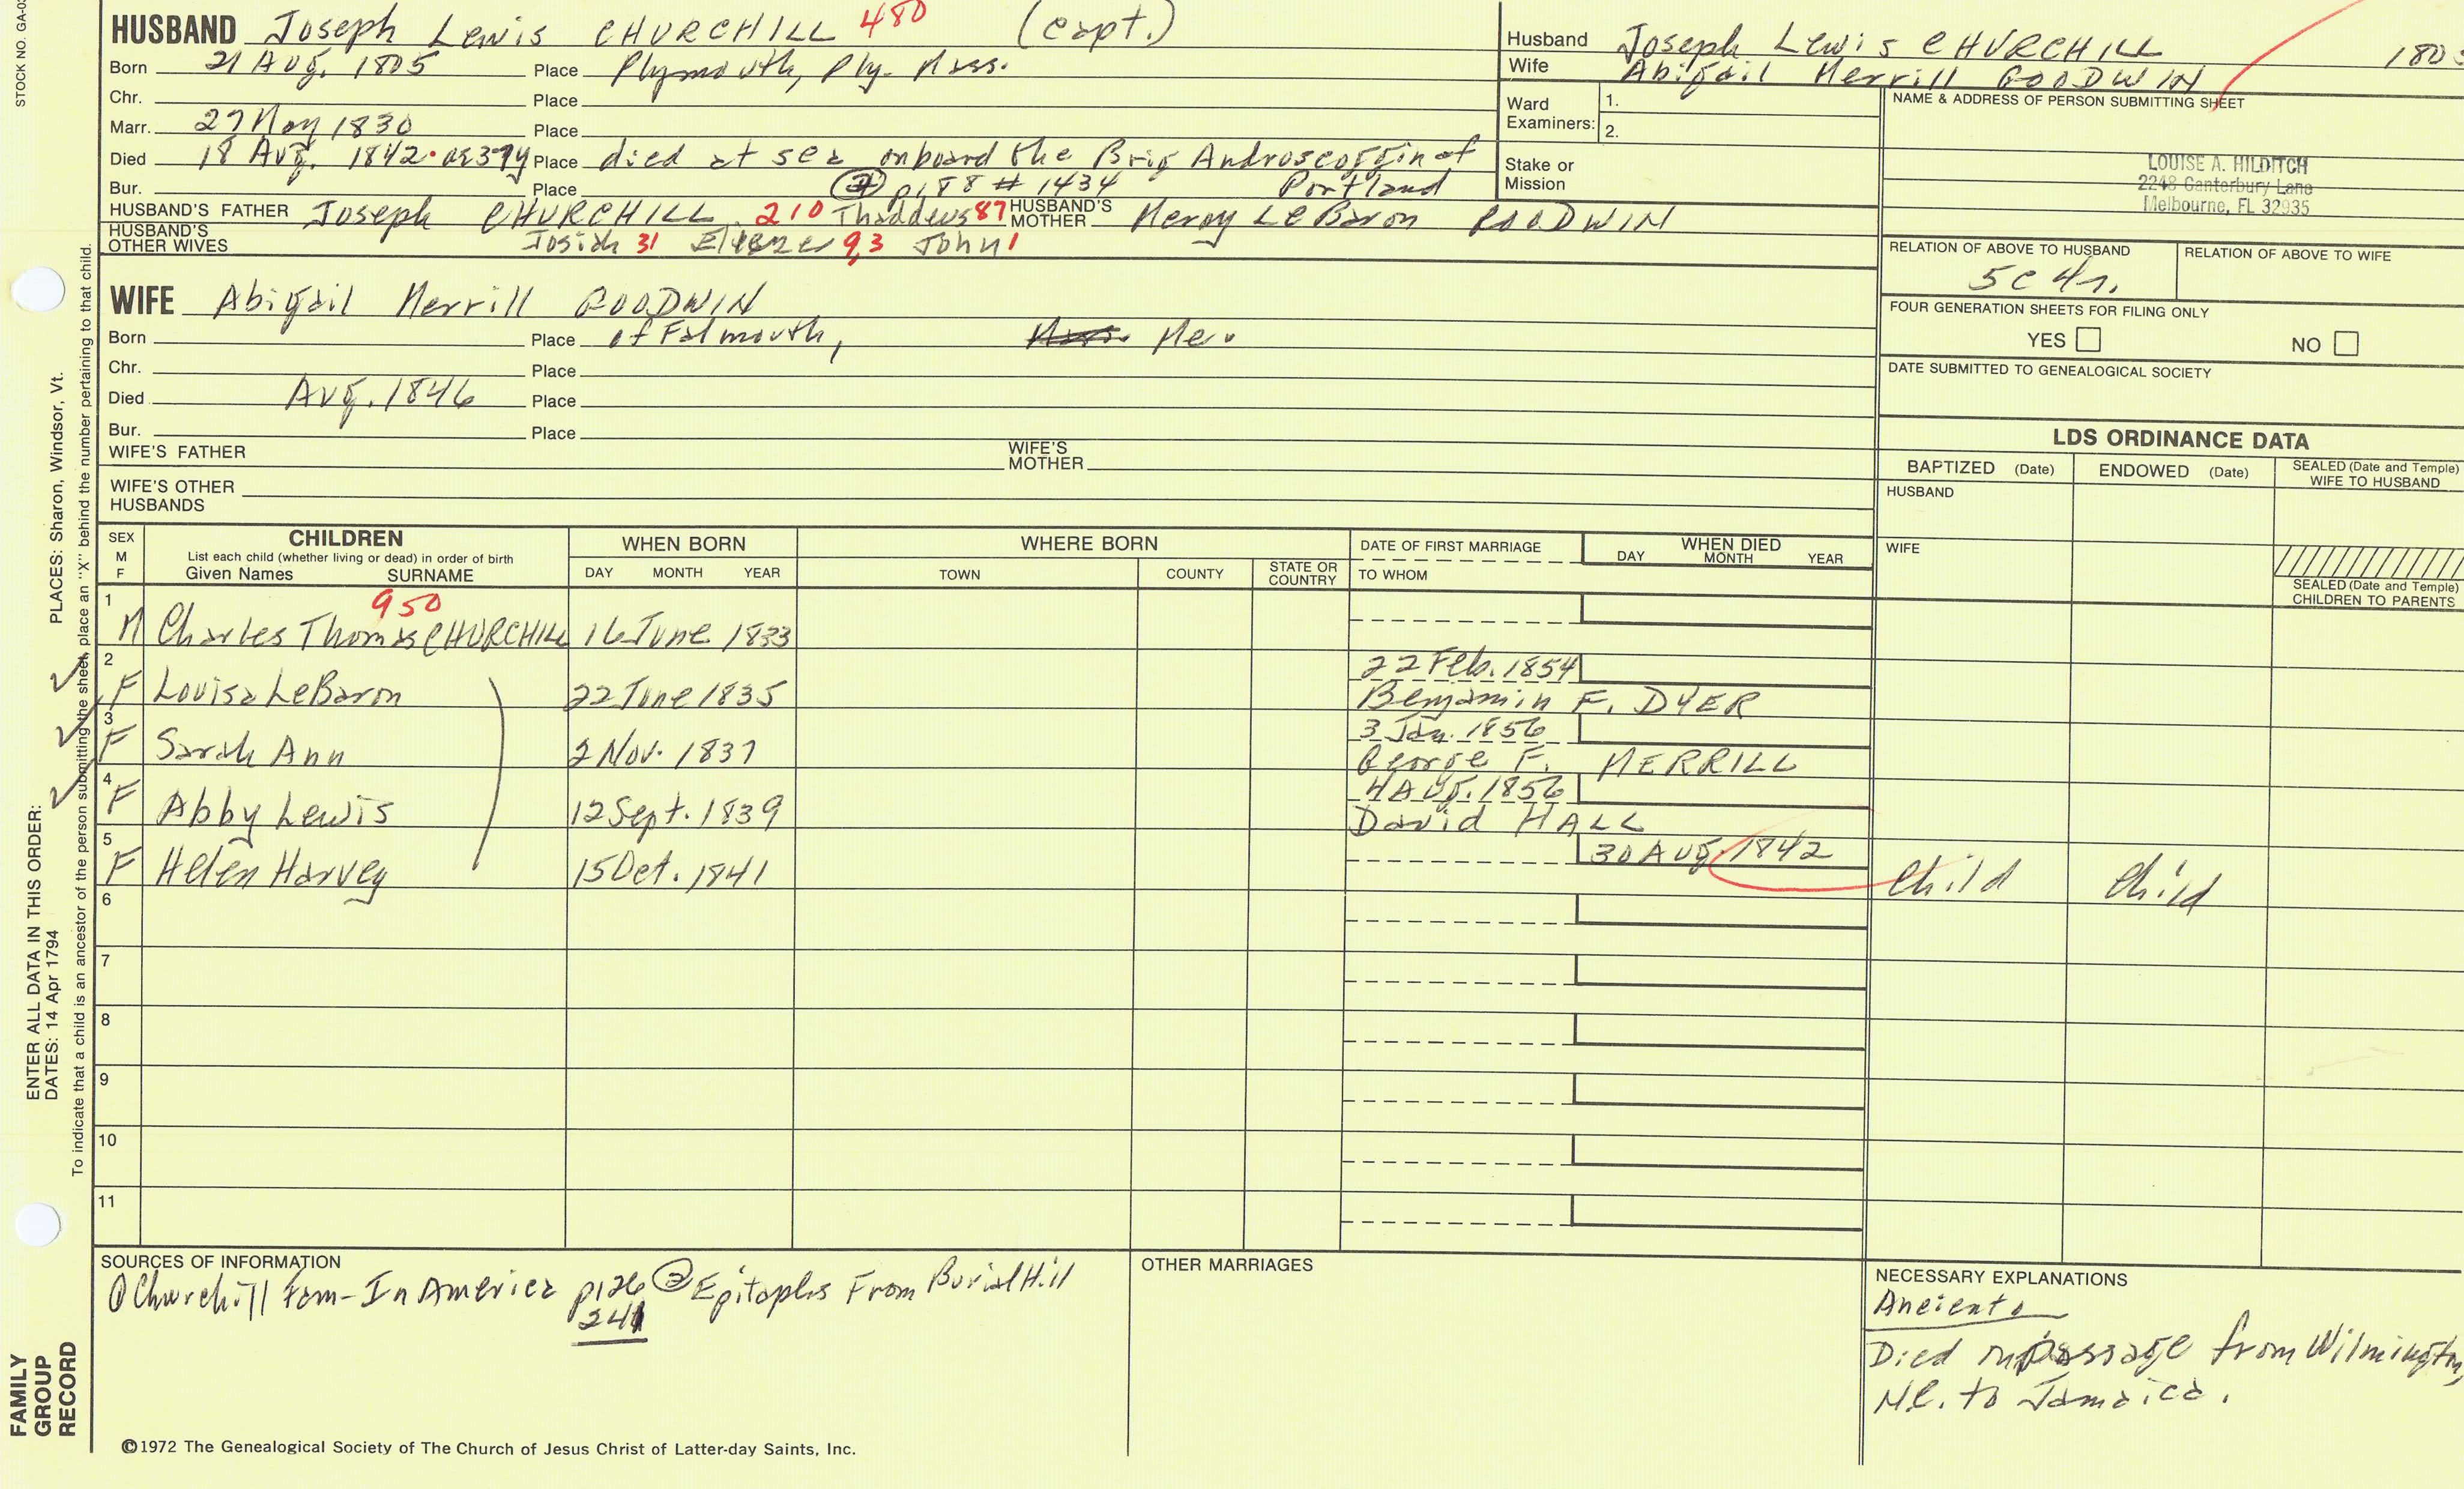 STOCK NO. GA-0
HUSBAND Joseph Lewis CHURCHILL 480 (Capt.)
Born 21 Aug. 1805 Place Plymouth, Ply. Mass.
Chr. Place
Marr. 27 May 1830 Place
Died 18 Aug. 1842. ae 37y Place died at sea onboard the Brig Androscoggin of
Bur. Place p188 # 1434 Portland
HUSBAND'S FATHER Joseph CHURCHILL 210 Thaddeus 87 HUSBAND'S MOTHER Mercy LeBaron GOODWIN
HUSBAND'S OTHER WIVES Josiah 31 Eleazer 9,3 John 1
Husband Joseph Lewis CHURCHILL 180
Wife Abigail Merrill GOODWIN
Ward Examiners: 1.
2.
Stake or Mission
NAME & ADDRESS OF PERSON SUBMITTING SHEET
LOUISE A. HILDITCH
2248 Canterbury Lane
Melbourne, FL 32935
RELATION OF ABOVE TO HUSBAND RELATION OF ABOVE TO WIFE
5C 4r.
FOUR GENERATION SHEETS FOR FILING ONLY
YES NO
DATE SUBMITTED TO GENEALOGICAL SOCIETY
WIFE Abigail Merrill GOODWIN
Born Place of Falmouth, Me.
Chr. Place
Died Aug. 1846 Place
Bur. Place
WIFE'S FATHER WIFE'S MOTHER
WIFE'S OTHER HUSBANDS
LDS ORDINANCE DATA
BAPTIZED (Date) ENDOWED (Date) SEALED (Date and Temple) WIFE TO HUSBAND
HUSBAND
WIFE
SEALED (Date and Temple) CHILDREN TO PARENTS
SEX M F CHILDREN List each child (whether living or dead) in order of birth Given Names SURNAME
WHEN BORN DAY MONTH YEAR
WHERE BORN TOWN COUNTY STATE OR COUNTRY
DATE OF FIRST MARRIAGE TO WHOM
WHEN DIED DAY MONTH YEAR
950
1 M Charles Thomas CHURCHILL 16 June 1833
2 F Louisa LeBaron 22 June 1835 22 Feb. 1854 Benjamin F. DYER
3 F Sarah Ann 2 Nov. 1837 3 Jan. 1856 George F. MERRILL
4 F Abby Lewis 12 Sept. 1839 4 Aug. 1856 David HALL
5 F Helen Harvey 15 Oct. 1841 30 Aug. 1842 Child Child
6
7
8
9
10
11
SOURCES OF INFORMATION
① Churchill Fam-In America p126 ② Epitaphs From Burial Hill
241
OTHER MARRIAGES
NECESSARY EXPLANATIONS
Ancients
Died on passage from Wilmington,
N.C. to Jamaica.
©1972 The Genealogical Society of The Church of Jesus Christ of Latter-day Saints, Inc.
FAMILY GROUP RECORD
ENTER ALL DATA IN THIS ORDER:
DATES: 14 Apr 1794
PLACES: Sharon, Windsor, Vt.
To indicate that a child is an ancestor of the person submitting the sheet, place an "X" behind the number pertaining to that child.